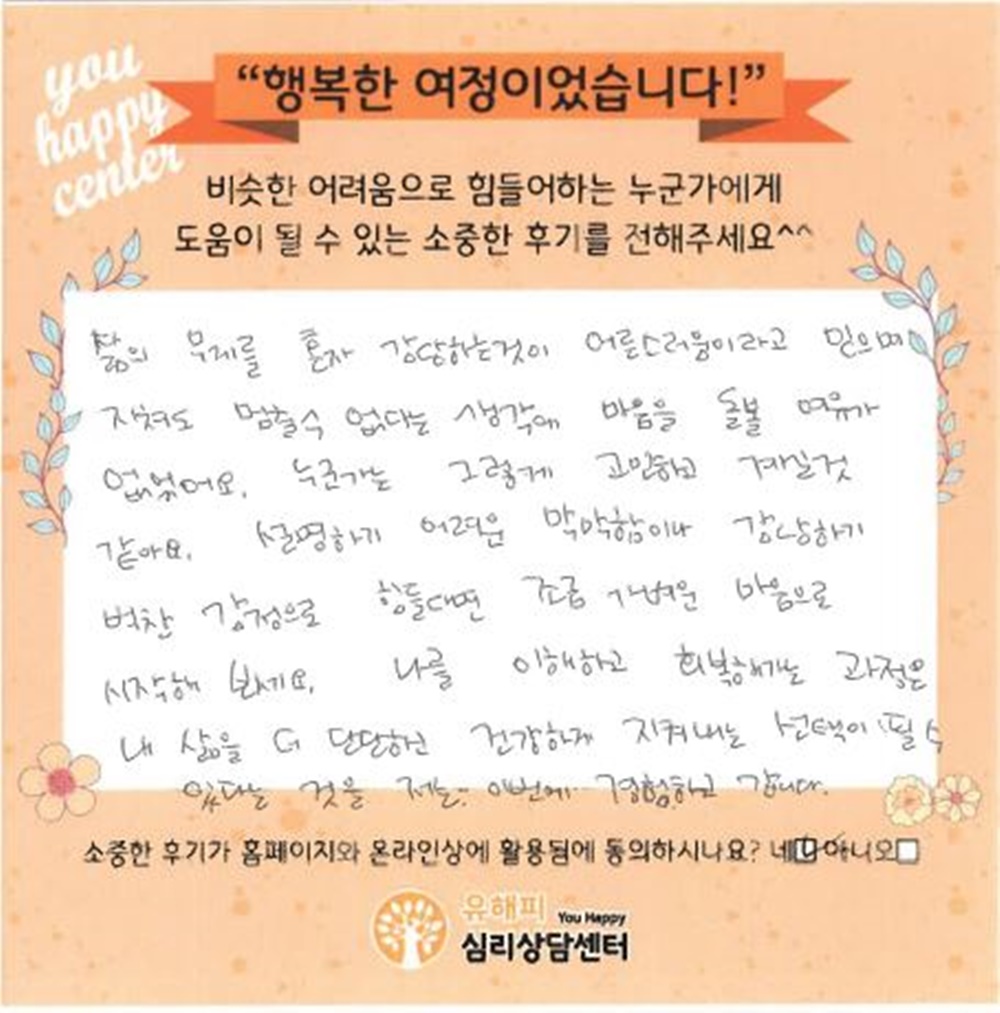 you
happy
center
“행복한 여정이었습니다!”
비슷한 어려움으로 힘들어하는 누군가에게
도움이 될 수 있는 소중한 후기를 전해주세요^^
삶의 무게를 혼자 감당하는것이 어른스러움이라고 믿으며
지쳐도 멈출수 없다는 생각에 마음을 돌볼 여유가
없었어요. 누군가는 그렇게 고민하고 계실것
같아요. 설명하기 어려운 막막함이나 감당하기
벅찬 감정으로 힘들다면 조금 가벼운 마음으로
시작해 보세요. 나를 이해하고 회복해가는 과정은
내 삶을 더 단단하고 건강하게 지켜내는 선택이 될 수
있다는 것을 저는.. 이번에.. 경험하고 갑니다.
소중한 후기가 홈페이지와 온라인상에 활용됨에 동의하시나요? 네 아니오
유해피 You Happy
심리상담센터